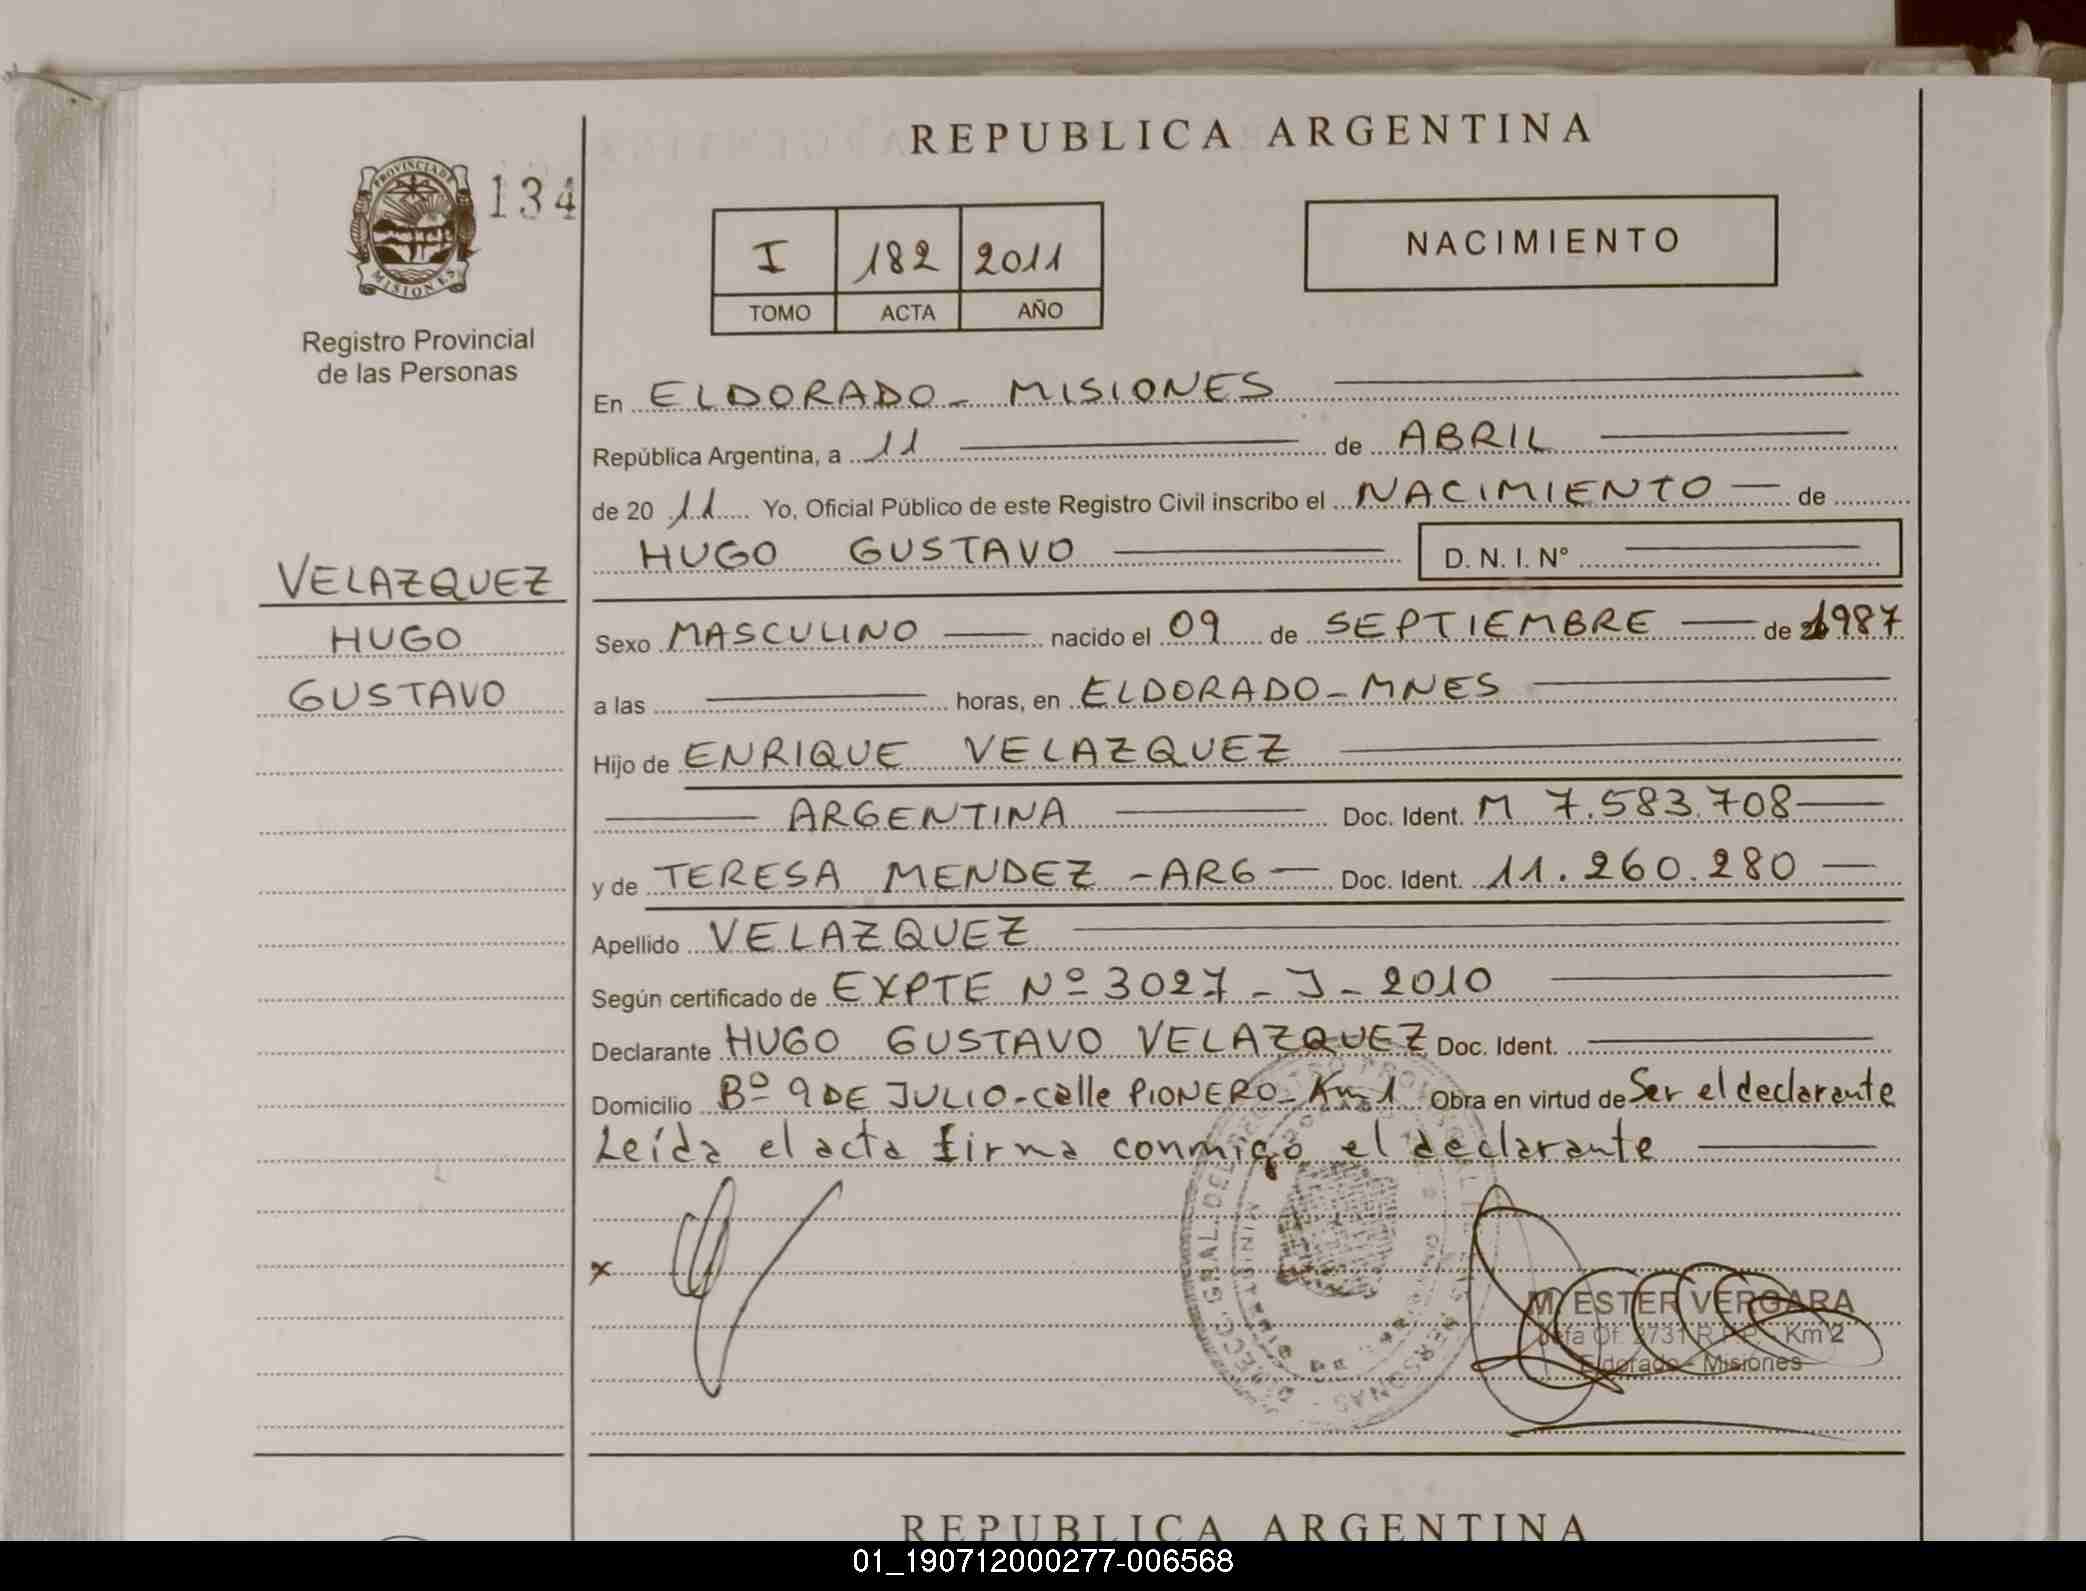 REPUBLICA ARGENTINA
PROVINCIA DE
MISIONES
134
I 182 2011
TOMO ACTA AÑO
NACIMIENTO
Registro Provincial
de las Personas
En ELDORADO - MISIONES
República Argentina, a 11 de ABRIL
de 20 11 Yo, Oficial Público de este Registro Civil inscribo el NACIMIENTO de
HUGO GUSTAVO D. N. I. Nº
VELAZQUEZ
HUGO
GUSTAVO
Sexo MASCULINO nacido el 09 de SEPTIEMBRE de 1987
a las horas, en ELDORADO - MNES
Hijo de ENRIQUE VELAZQUEZ
ARGENTINA Doc. Ident. M 7.583.708
y de TERESA MENDEZ - ARG Doc. Ident. 11.260.280
Apellido VELAZQUEZ
Según certificado de EXPTE Nº 3027 - J - 2010
Declarante HUGO GUSTAVO VELAZQUEZ Doc. Ident.
Domicilio Bº 9 DE JULIO - calle PIONERO - Km 1 Obra en virtud de Ser el declarante
Leída el acta firma conmigo el declarante
x
M. ESTER VERGARA
Jefa Of. 2731 R.P.P. - Km 2
Eldorado - Misiones
REPUBLICA ARGENTINA
01_190712000277-006568